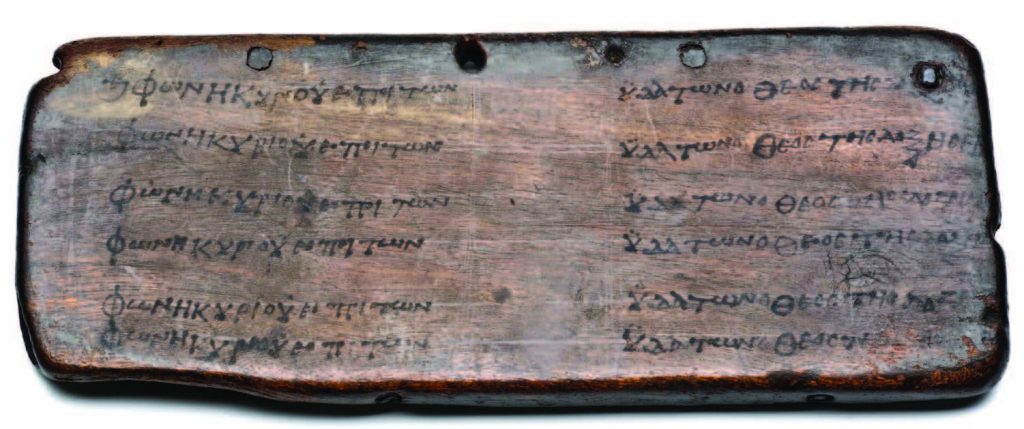 φωνη κυριου επι των ϋδατων ο θεος της
φωνη κυριου επι των ϋδατων ο θεος της δοξης
φωνη κυριου επι των ϋδατων ο θεος της
φωνη κυριου επι των ϋδατων ο θεος της
φωνη κυριου επι των ϋδατων ο θεος της δοξ
φωνη κυριου επι των ϋδατων ο θεος